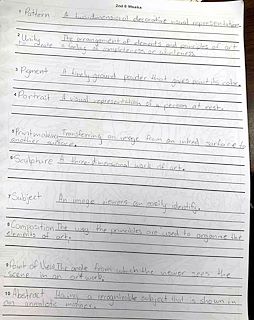 2nd 6 Weeks
1 Pattern A two-dimensional decorative visual representation.
2 Unity The arrangement of elements and principles of art
to create a feeling of completeness or wholeness.
3 Pigment A finely ground powder that gives paint its color.
4 Portrait A visual representation of a person at rest.
5 Printmaking Transferring an image from an inked surface to
another surface.
6 Sculpture A three-dimensional work of art.
7 Subject An image viewers can easily identify.
8 Composition The way the principles are used to organize the
elements of art.
9 Point of View The angle from which the viewer sees the
scene in an artwork.
10 Abstract Having a recognizable subject that is shown in
an manner.